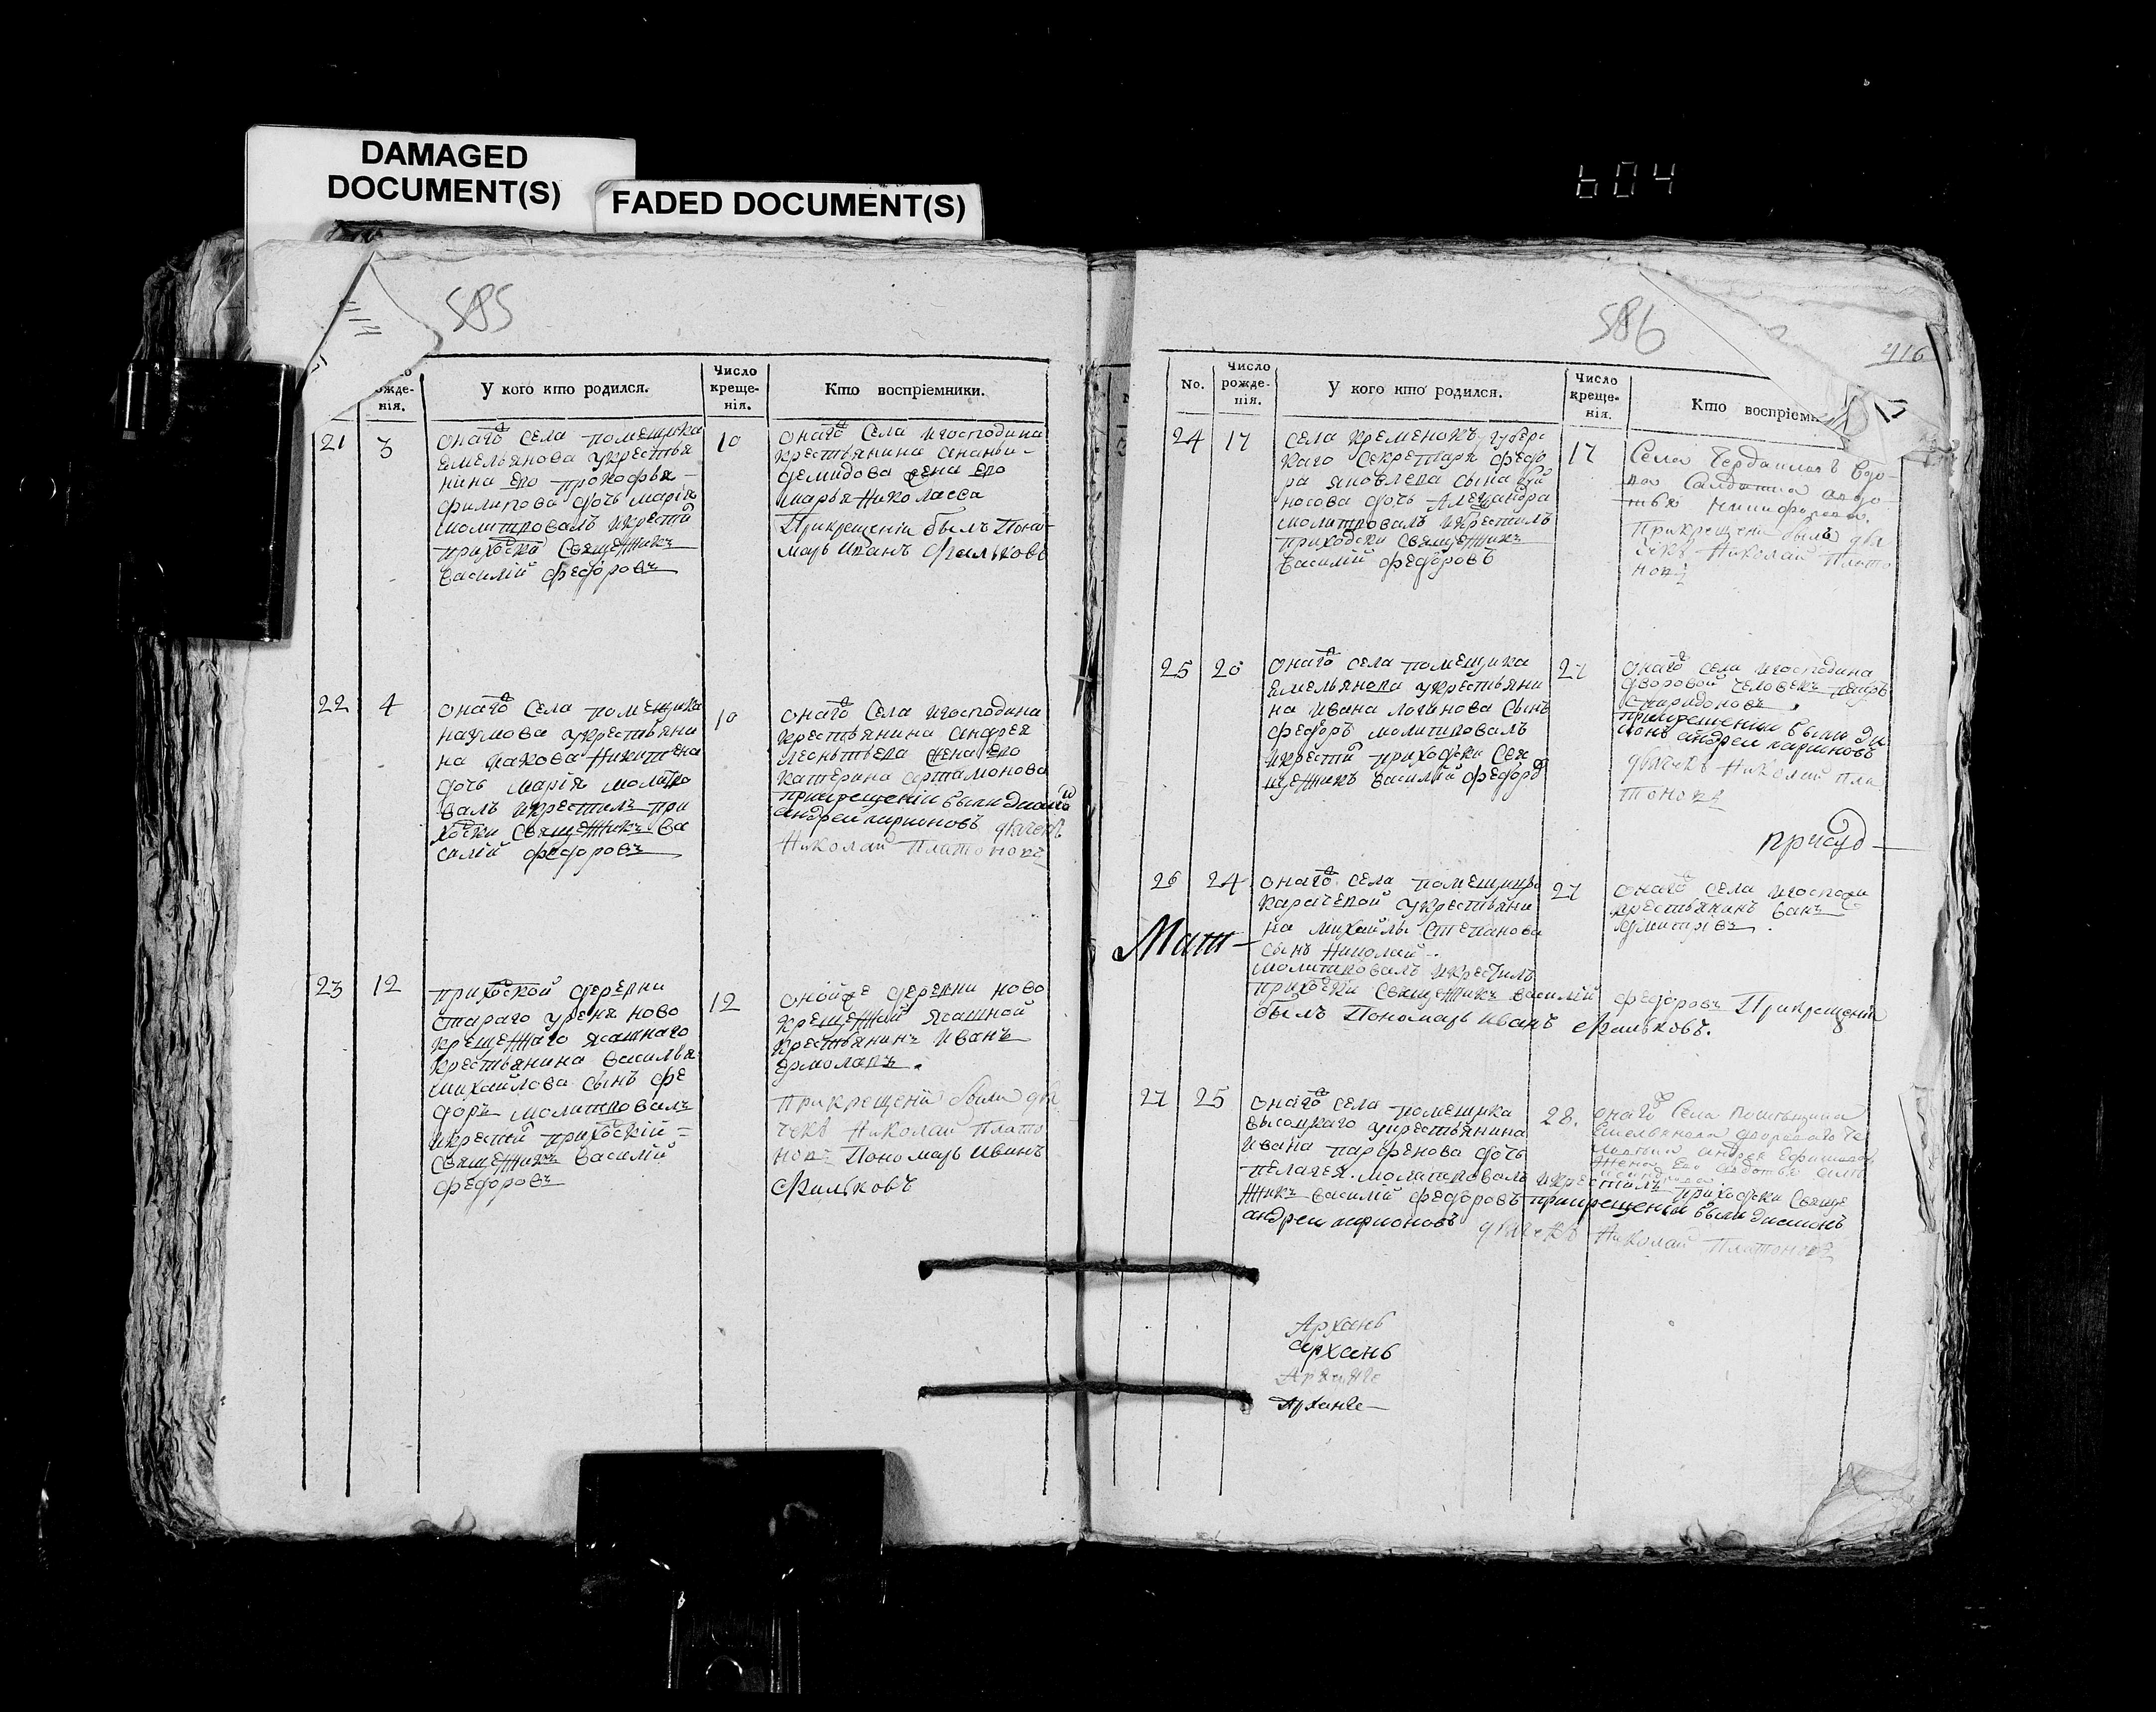 DAMAGED
DOCUMENT(S)
FADED DOCUMENT(S)
604
585
рожде-
нія.
У кого кто родился.
Число
креще-
нія.
Кто воспріемники.
21
3
онаго села помещика
емельянова укрестья
нина его прокофья
филипова дочь марія
молитвовалъ икрести
приходски священникъ
василій федоровъ
10
онаго села игосподина
крестьянина ананьи
демидова жена его
марья николаева
Прикрещеніи былъ Поно
марь иванъ Фильковъ
22
4
онаго села помещика
наумова укрестьяни
на якова никитена
дочь марія молитво
валъ икрестилъ при
ходски священникъ ва
силій федоровъ
10
онаго села игосподина
крестьянина андрея
леонтьева жена его
катерина артамонова
прикрещеніи были диаконъ
андреи ларионовъ дьячекъ
Николаи Платоновъ
23
12
приходской деревни
стараго уреня ново
крещеннаго ясашнаго
крестьянина василья
михайлова сынъ фе
доръ молитвовалъ
икрести приходскій
священникъ василій
федоровъ
12
онойже деревни ново
крещенной ясашной
крестьянинъ Иванъ
ермолаевъ.
прикрещени были дья
чекъ Николаи Плато
новъ Пономарь Иванъ
Фильковъ
586
416
No.
Число
рожде-
нія.
У кого кто родился.
Число
креще-
нія.
Кто воспріем
24
17
села кременокъ губерс
каго секретаря федо
ра яковлева сына
носова дочь Александра
молитвовалъ икрестилъ
приходски священникъ
василій федоровъ
17
Села Чердаклов вдо
ва Салдатка авдо
тья Никифорова.
прикрещени былъ дья
чекъ Николаи Плато
новъ
25
20
онаго села помещика
емельянова укрестьяни
на ивана логинова сынъ
федоръ молитвовалъ
икрести приходски свя
щенникъ василій федоро
27
онаго села игосподина
дворовой человекъ петръ
спиридоновъ,
прикрещеніи были ди
конъ андреи ларионовъ
дьячекъ Николаи пла
тоновъ
присуд
26
24
онаго села помещицы
карачевой укрестьяни
на михайлы степанова
сынъ Николай
молитвовалъ икрестилъ
27
онаго села игосподи
крестьянинъ
димитріевъ.
Мат
приходски священникъ василій федоровъ Прикрещеніи
былъ Пономарь иванъ Фильковъ.
27
25
онаго села помещика
высоцкаго укрестьянина
ивана парфенова дочь
пелагея. молитвовалъ икрестилъ приходски свяще
28.
онаго Села помещика
Емельянова двороваго че
андрея Ефимова
Жена Его авдотья
нникъ василій федоровъ прикрещеніи были диаконъ
андреи ларионовъ дьячекъ Николаи Платоновъ
Архань
архань
Арханге
Арханге